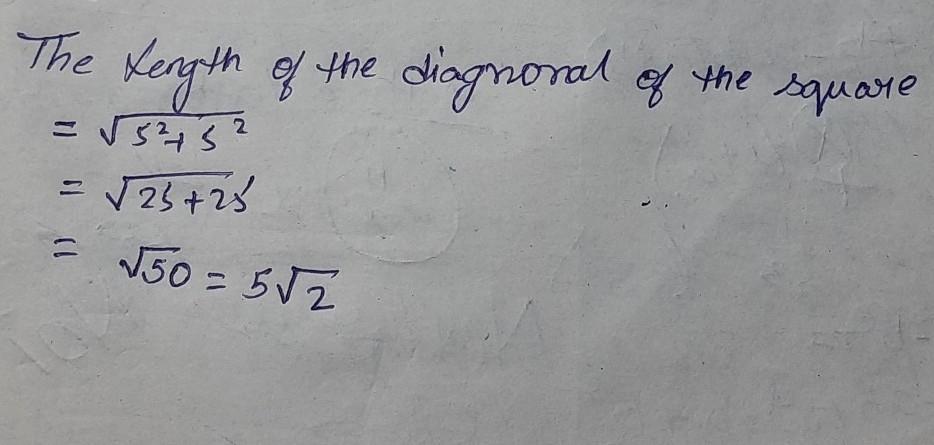 The length of the diagnonal of the square
= √5²+5²
= √25+25
= √50 = 5√2